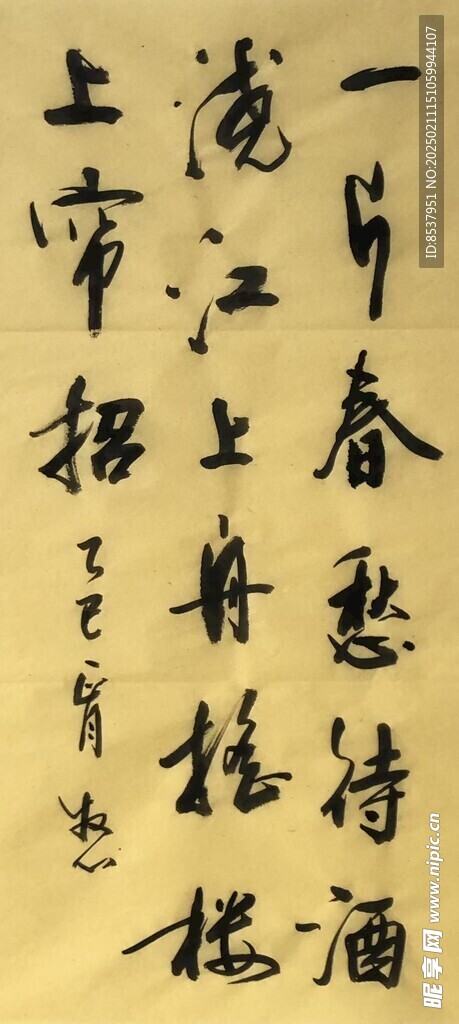 一片春愁待酒
浇江上舟摇楼
上帘招
乙巳正月
ID:8537951 NO:20250211151059944107
昵享网 www.nipic.cn